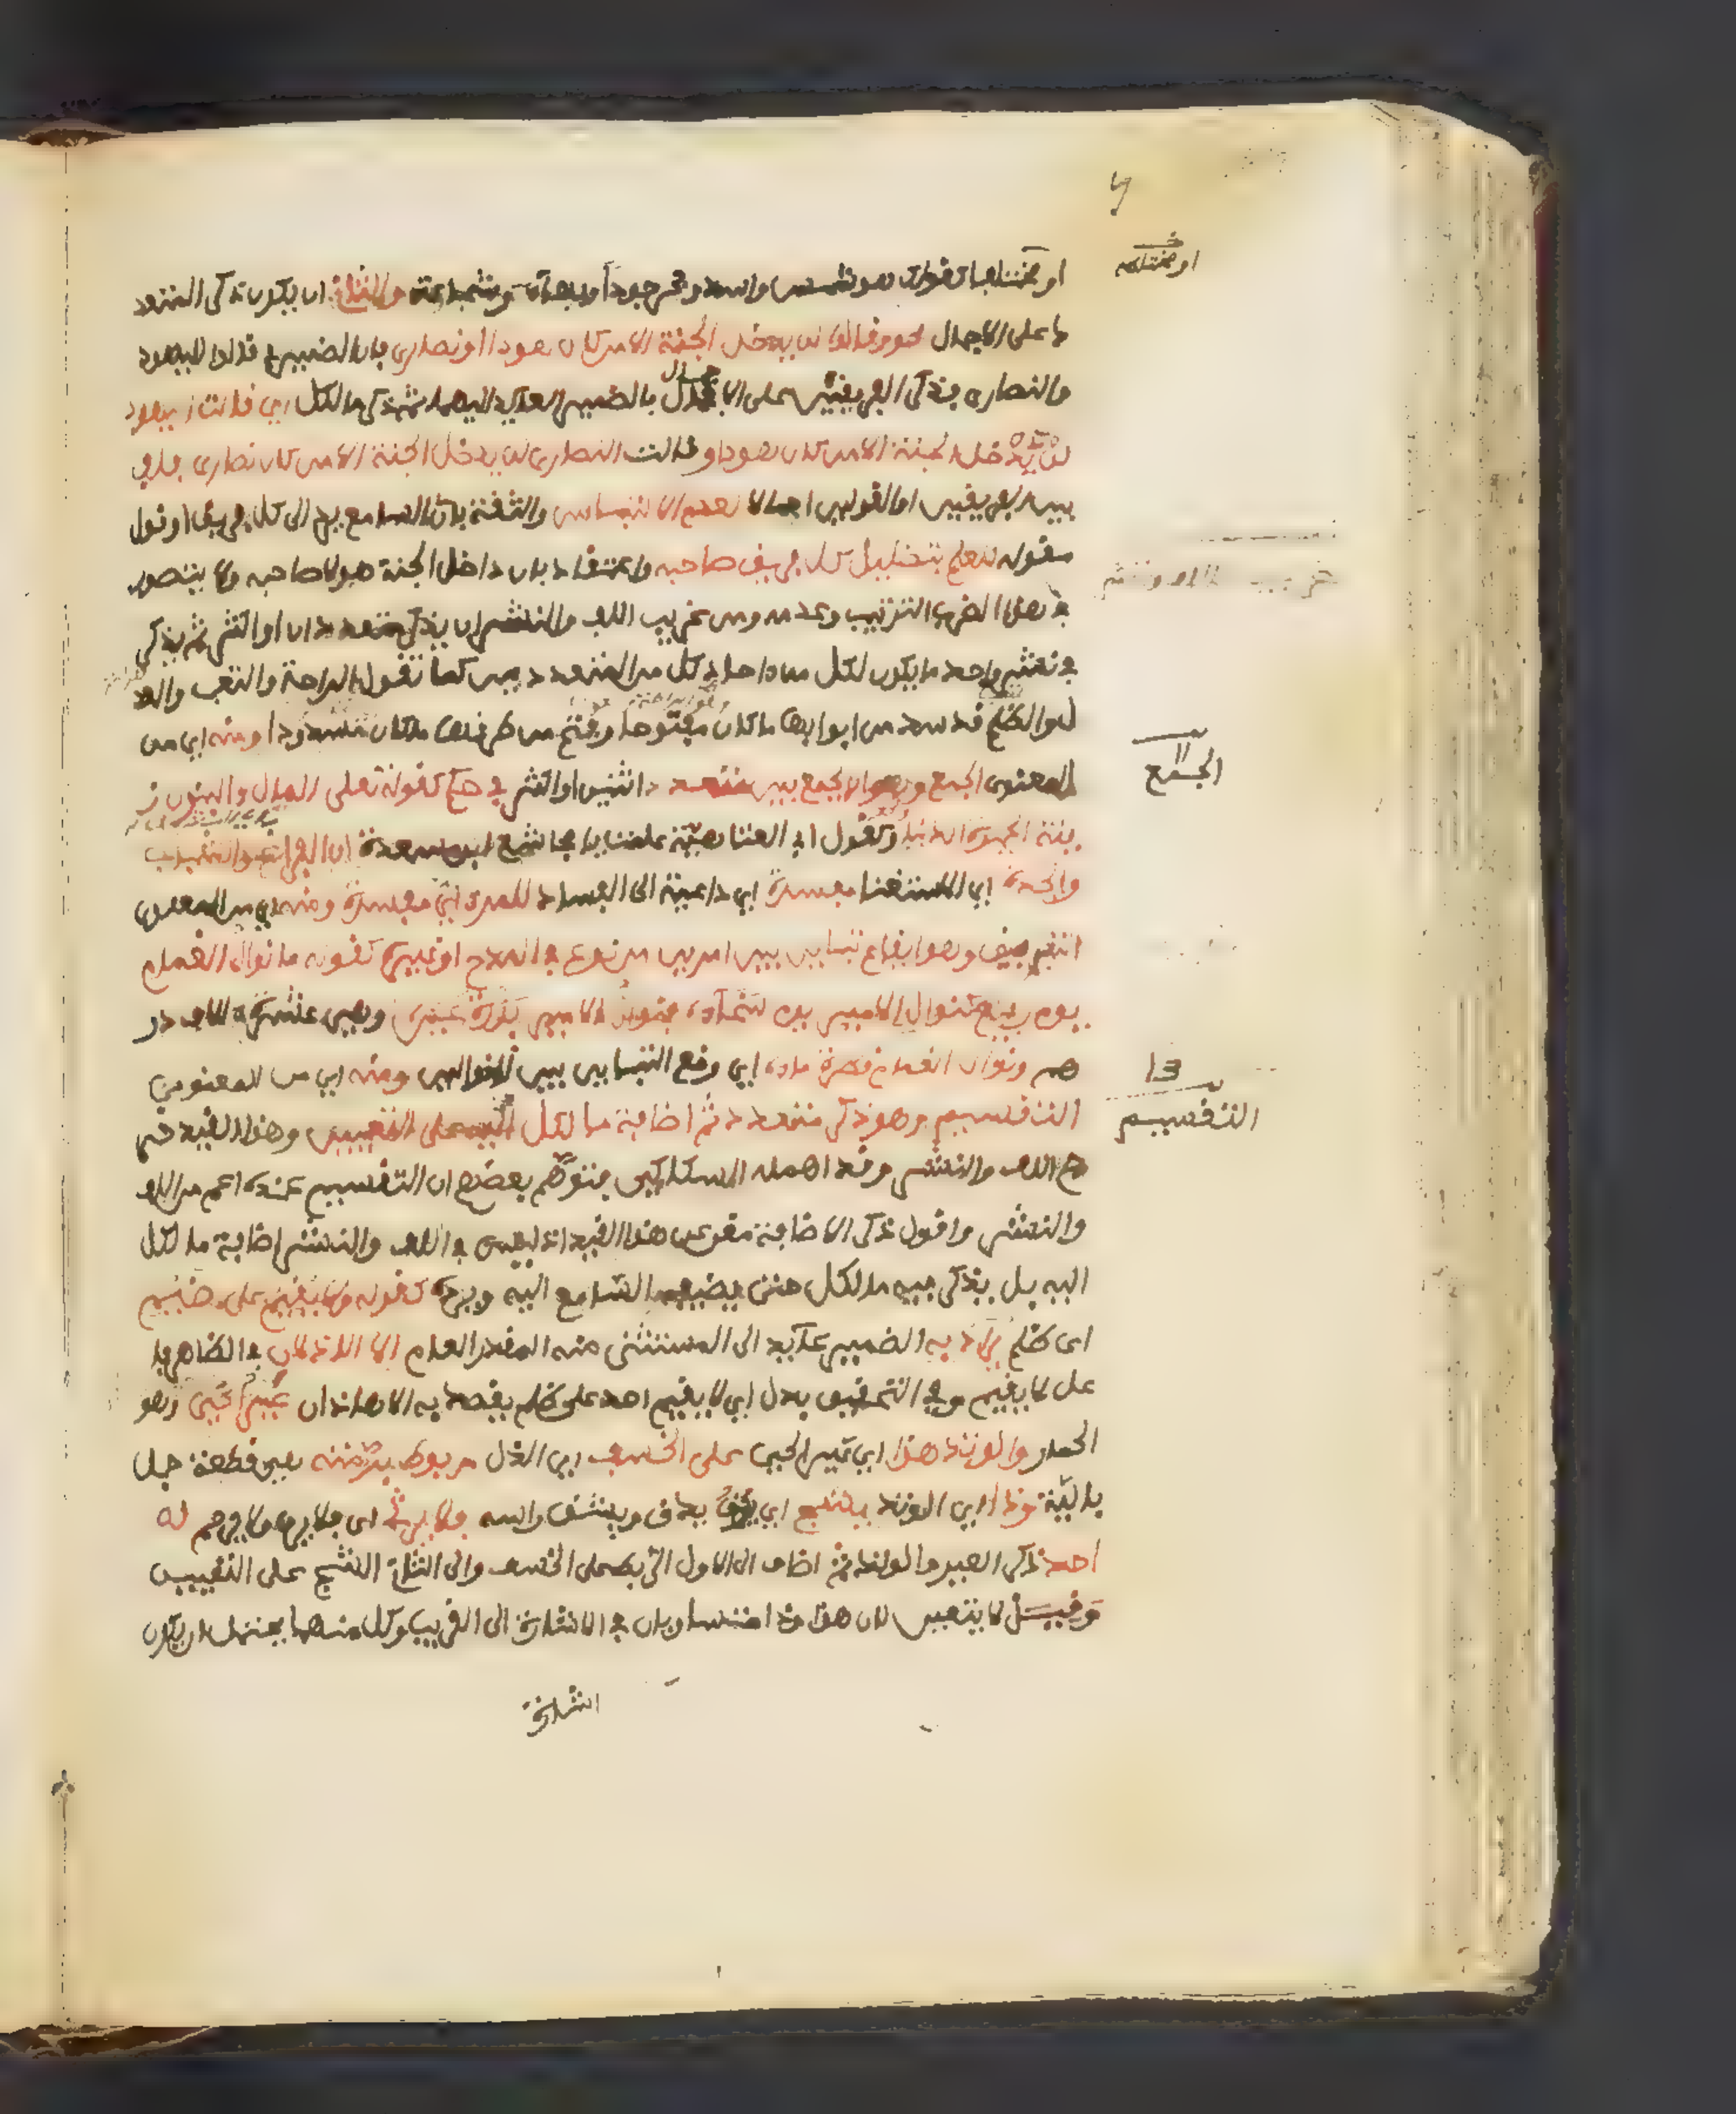 او مختلطا كقولك هو شمس واسد وبحر جودا وبهاء وشجاعة والثاني ان يكون ذكر المتعدد
ما على الاجمال نحو وقالوا لن يدخل الجنة الا من كان هودا او نصارى فان الضمير في قالوا لليهود
والنصارى فذكر الفريقين على الاجمال بالضمير العائد اليهما ثم ذكر ما لكل اي قالت اليهود
لن يدخل الجنة الا من كان هودا وقالت النصارى لن يدخل الجنة الا من كان نصارى فلف
بين الفريقين او القولين اجمالا لعدم الالتباس والثقة بان السامع يرد الى كل فريق او قول
مقوله للعلم بتضليل كل فريق صاحبه واعتقاد بان داخل الجنة هو لا صاحبه ولا يتصور
في هذا الضرب الترتيب وعدمه ومن غريب اللف والنشر ان يذكر متعددان او اكثر ثم يذكر
في نشر واحد ما يكون لكل من احاد كل من المتعددين كما تقول الراحة والتعب والعد
ل والظلم قد سد من ابوابها ما كان مفتوحا وفتح من طرقها ما كان مسدودا ومنه اي من
المعنوي الجمع وهو ان يجمع بين متعدد اثنين او اكثر في حكم كقوله تعلى المال والبنون ز
ينة الحيوة الدنيا وكقول ابي العتاهية علمت يا مجاشع ابن مسعدة ان الفراغ والشباب
والجدة اي الاستغنا مفسدة اي داعية الى الفساد للمرء اي مفسدة ومنه اي من المعنوي
التفريق وهو ايقاع تباين بين امرين من نوع في المدح او غيره كقوله ما نوال الغمام
يوم ربيع كنوال الامير يوم سخاء فنوال الامير بدرة عين وهي عشرة الاف در
هم ونوال الغمام قطرة ماء اي وقع التباين بين النوالين ومنه اي من المعنوي
التقسيم وهو ذكر متعدد ثم اضافة ما لكل اليه على التعيين وهذا القيد خر
ج اللف والنشر وقد اهمله السكاكي فتوهم بعضهم ان التقسيم عنده اعم من اللف
والنشر واقول ذكر الاضافة مغن عن هذا القيد اذ ليس في اللف والنشر اضافة ما لكل
اليه بل يذكر فيه ما لكل حتى يضيفه السامع اليه ويرده كقوله ولا يقيم على ضيم
اى ظلم يراد به الضمير عائد الى المستثنى منه المقدر العام الا الاذلان في الظاهر فا
عل لا يقيم وفي التحقيق بدل اي لا يقيم احد على ظلم يقصد به الا هاذان عير الحي وهو
الحمار والوتد هذا اي عير الحي على الخسف اي الذل مربوط برمته هي قطعة حبل
بالية وذا اي الوتد يشج اي يدق ويشق راسه فلا يرثى اى فلا يرق ولا يرحم له
احد ذكر العير والوتد ثم اضاف الى الاول الربط على الخسف والى الثاني الشج على التعيين
وقيل لا يتعين لان هذا وذا متساويان في الاشارة الى القريب وكل منهما يحتمل ان يكون
اشارة
او مختلطه
11
الجمع
13
التقسيم